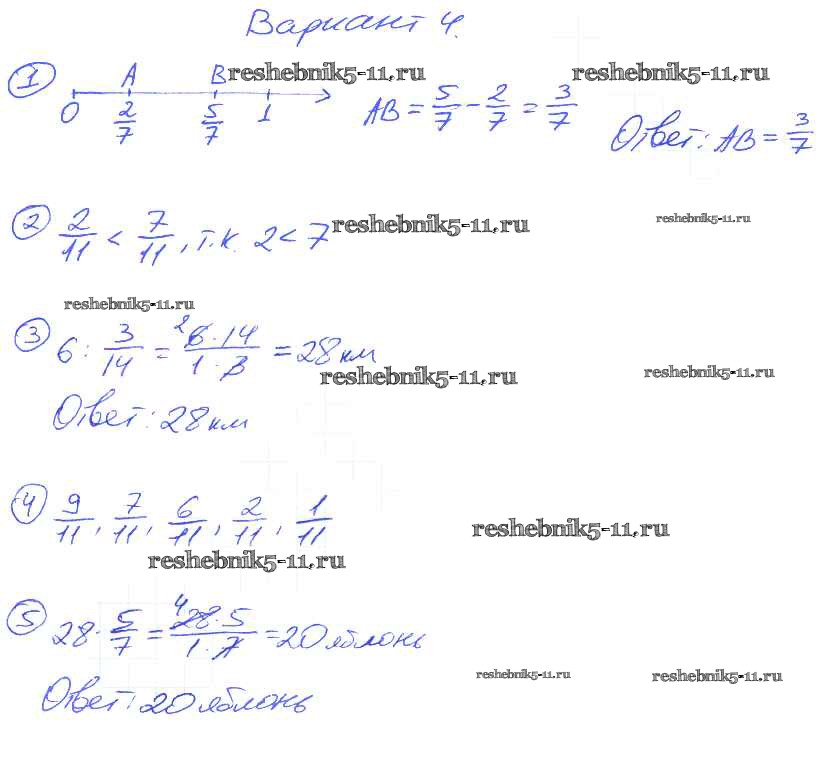 Вариант 4.
1 A B reshebnik5-11.ru reshebnik5-11.ru
0 2/7 5/7 1 AB = 5/7 - 2/7 = 3/7 Ответ: AB = 3/7
2 2/11 < 7/11, т.к. 2 < 7 reshebnik5-11.ru reshebnik5-11.ru
reshebnik5-11.ru
3 6 : 3/14 = 2 6·14/1·3 = 28 км
reshebnik5-11.ru reshebnik5-11.ru
Ответ: 28 км
4 9/11, 7/11, 6/11, 2/11, 1/11 reshebnik5-11.ru
reshebnik5-11.ru
5 28 · 5/7 = 4 28·5/1·7 = 20 яблонь
reshebnik5-11.ru reshebnik5-11.ru
Ответ: 20 яблонь